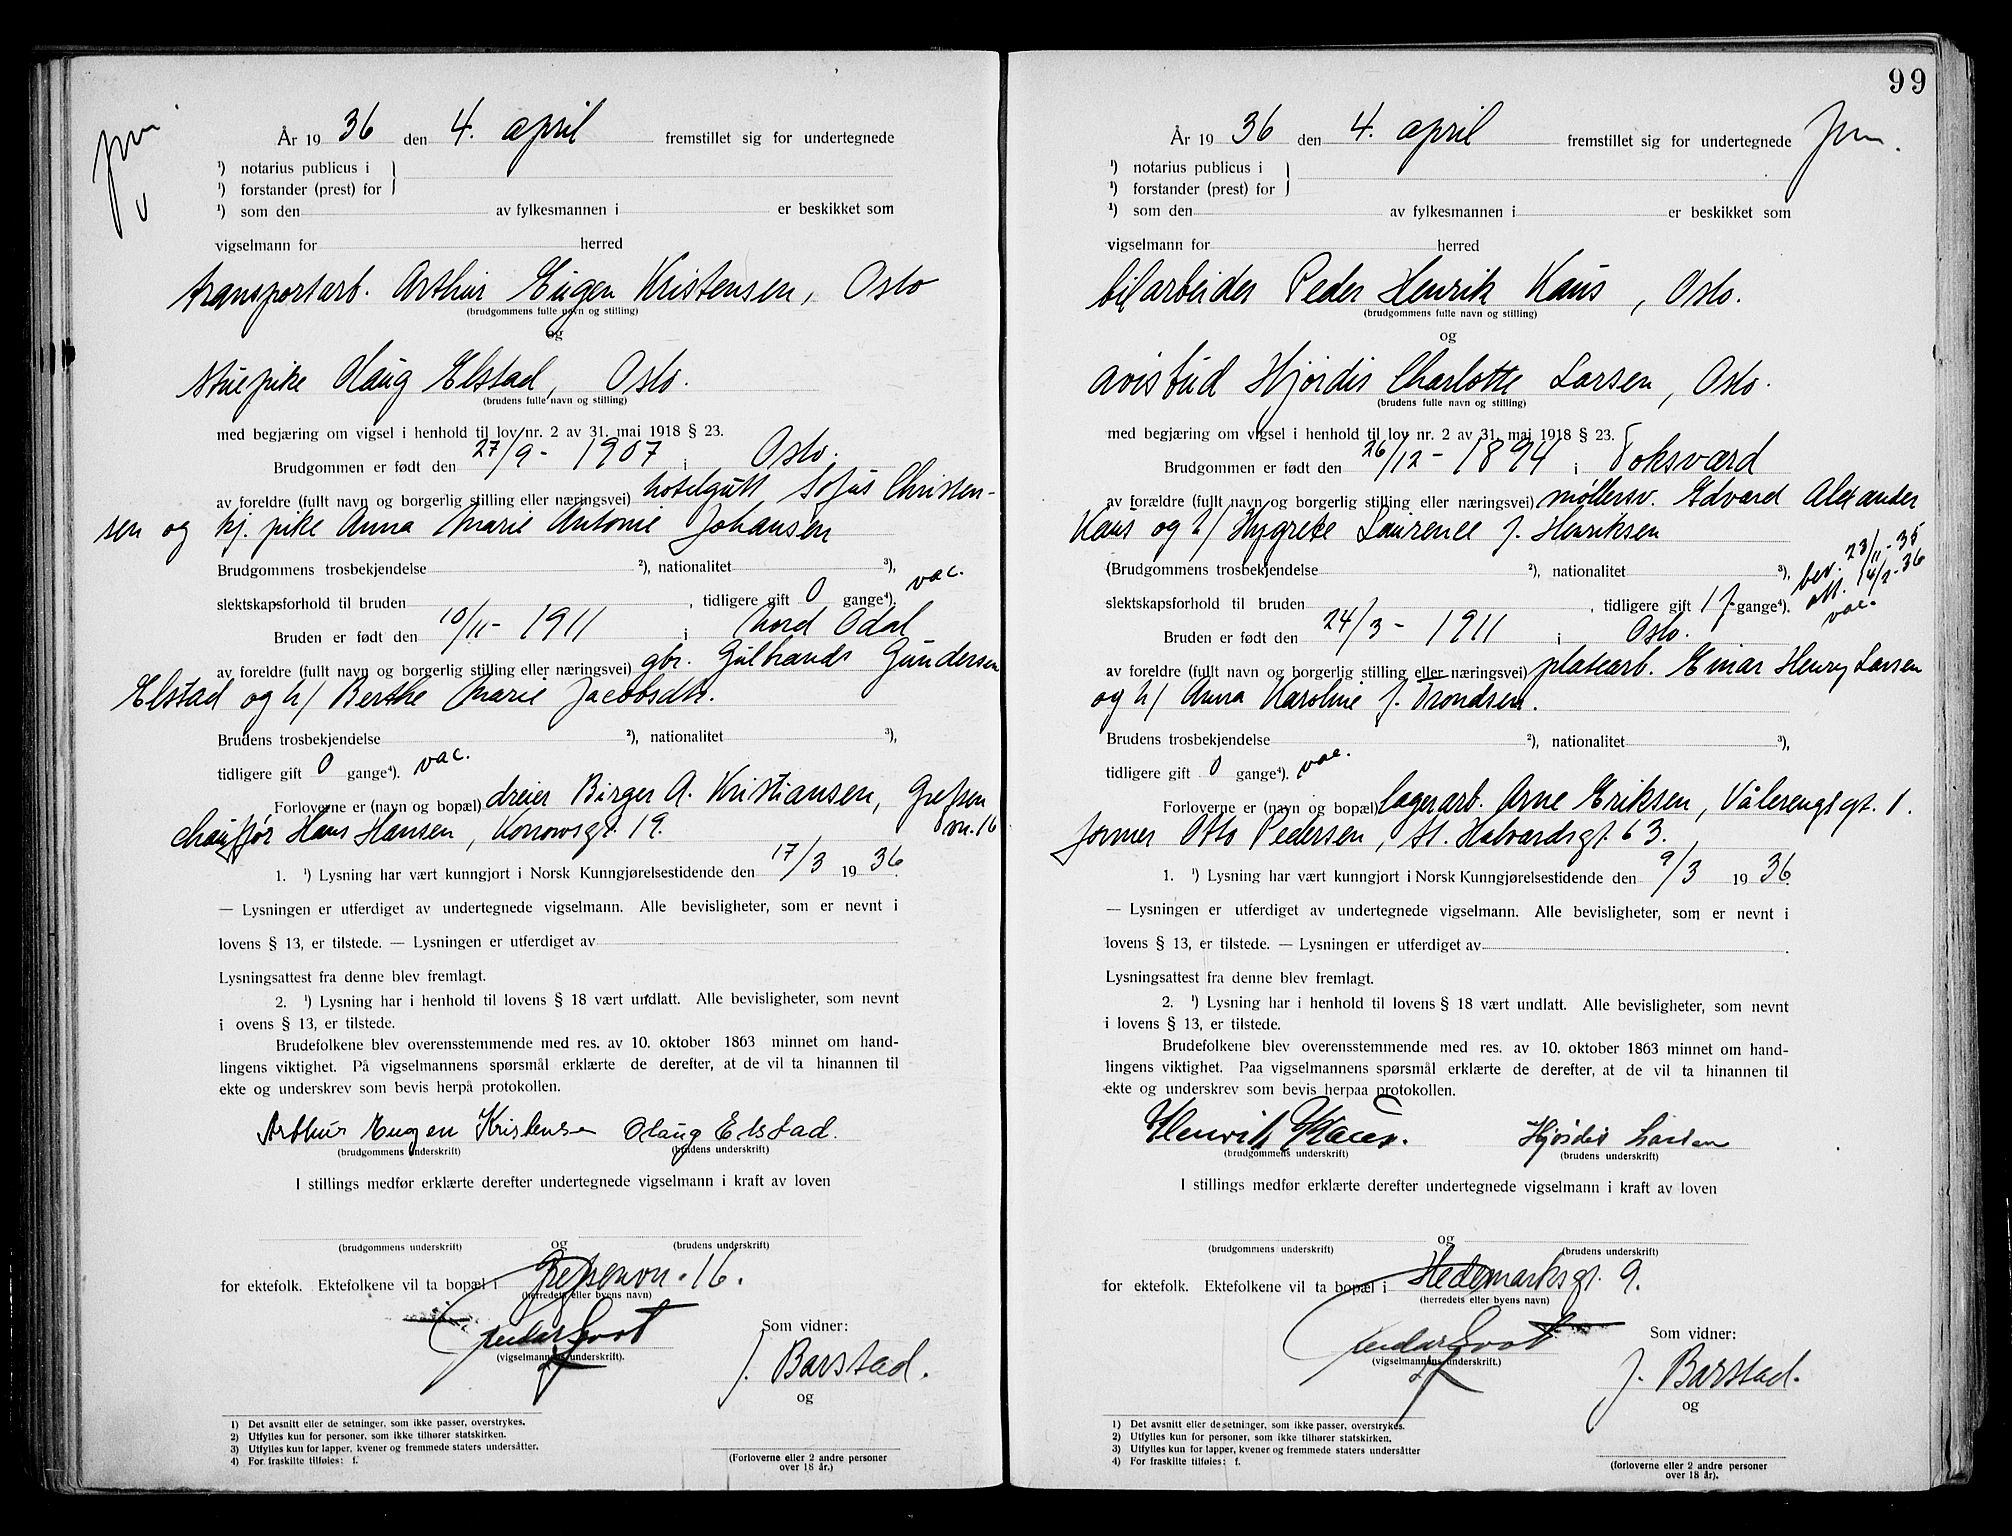 År 1936 den 4. april fremstillet sig for undertegnede
¹) notarius publicus i
¹) forstander (prest) for
¹) som den av fylkesmannen i er beskikket som
vigselmann for herred
transportarb. Arthur Eugen Kristensen, Oslo
(brudgommens fulle navn og stilling)
og
stuepike Olaug Elstad, Oslo.
(brudens fulle navn og stilling)
med begjæring om vigsel i henhold til lov nr. 2 av 31. mai 1918 § 23.
Brudgommen er født den 27/9 - 1907 i Oslo.
av foreldre (fullt navn og borgerlig stilling eller næringsvei) hotelgutt Sofus Christen-
sen og hj. pike Anna Marie Antonie Johansen
Brudgommens trosbekjendelse ²), nationalitet ³),
slektskapsforhold til bruden , tidligere gift 0 gange⁴). vac.
Bruden er født den 10/11 - 1911 i Nord Odal
av foreldre (fullt navn og borgerlig stilling eller næringsvei) gbr. Gulbrand Gundersen
Elstad og h/ Berthe Marie Jacobsdtr.
Brudens trosbekjendelse ²), nationalitet ³),
tidligere gift 0 gange⁴). vac.
Forloverne er (navn og bopæl) dreier Birger A. Kristiansen, Grefsen
vn. 16
chauffør Hans Hansen, Konowsgt. 19.
1. ¹) Lysning har vært kunngjort i Norsk Kunngjørelsestidende den 17/3 1936.
— Lysningen er utferdiget av undertegnede vigselmann. Alle bevisligheter, som er nevnt i
lovens § 13, er tilstede. — Lysningen er utferdiget av
Lysningsattest fra denne blev fremlagt.
2. ¹) Lysning har i henhold til lovens § 18 vært undlatt. Alle bevisligheter, som nevnt
i ovens § 13, er tilstede.
Brudefolkene blev overensstemmende med res. av 10. oktober 1863 minnet om hand-
lingens viktighet. På vigselmannens spørsmål erklærte de derefter, at de vil ta hinannen til
ekte og underskrev som bevis herpå protokollen.
Arthur Eugen Kristensen Olaug Elstad.
(brudgommens underskrift) (brudens underskrift)
I stillings medfør erklærte derefter undertegnede vigselmann i kraft av loven
og
(brudgommens underskrift) (brudens underskrift)
for ektefolk. Ektefolkene vil ta bopæl i Grefsenvn. 16.
(herredets eller byens navn)
Som vidner:
(vigselmannens underskrift).
J. Barstad.
og
1) Det avsnitt eller de setninger, som ikke passer, overstrykes.
2) Utfylles kun for personer, som ikke tilhører statskirken.
3) Utfylles kun for lapper, kvener og fremmede staters undersåtter.
4) For fraskilte tilføies: f.
(Forloverne eller 2 andre personer
over 18 år.)
99
År 1936 den 4. april fremstillet sig for undertegnede
¹) notarius publicus i
¹) forstander (prest) for
¹) som den av fylkesmannen i er beskikket som
vigselmann for herred
bilarbeider Peder Henrik Kaus, Oslo.
(brudgommens fulle navn og stilling)
og
avisbud Hjørdis Charlotte Larsen, Oslo.
(brudens fulle navn og stilling)
med begjæring om vigsel i henhold til lov nr. 2 av 31. mai 1918 § 23.
Brudgommen er født den 26/12 - 1894 i Foksværd
av forældre (fullt navn og borgerlig stilling eller næringsvei) møllersv. Edvard Alexander
Kaus og h/ Laurence f. Henriksen
(Brudgommens trosbekjendelse ²), nationalitet ³), bev. 23/11-35
slektskapsforhold til bruden , tidligere gift 1 f. gange⁴). att. 14/2-36
vac.
Bruden er født den 24/3 - 1911 i Oslo.
av foreldre (fullt navn og borgerlig stilling eller næringsvei) platearb. Einar Henry Larsen
og h/ Anna Karoline f. Trondsen.
Brudens trosbekjendelse ²), nationalitet ³),
tidligere gift 0 gange⁴). vac.
Forloverne er (navn og bopæl) lagerarb. Arne Eriksen, Vålerengsgt. 1.
former Otto Pedersen, St. Halvardsgt. 63.
1. ¹) Lysning har vært kunngjort i Norsk Kunngjørelsestidende den 9/3 1936.
— Lysningen er utferdiget av undertegnede vigselmann. Alle bevisligheter, som er nevnt i
lovens § 13, er tilstede. — Lysningen er utferdiget av
Lysningsattest fra denne blev fremlagt.
2. ¹) Lysning har i henhold til lovens § 18 vært undlatt. Alle bevisligheter, som nevnt
i lovens § 13, er tilstede.
Brudefolkene blev overensstemmende med res. av 10. oktober 1863 minnet om hand-
lingens viktighet. Paa vigselmannens spørsmål erklærte de derefter, at de vil ta hinannen til
ekte og underskrev som bevis herpaa protokollen.
Henrik Kaus. Hjørdis Larsen
(brudgommens underskrift) (brudens underskrift)
I stillings medfør erklærte derefter undertegnede vigselmann i kraft av loven
og
(brudgommens underskrift) (brudens underskrift)
for ektefolk. Ektefolkene vil ta bopæl i Hedemarksgt. 9.
(herredets eller byens navn)
Som vidner:
(vigselmannens underskrift.)
J. Barstad.
og
1) Det avsnitt eller de setninger, som ikke passer, overstrykes.
2) Utfylles kun for personer, som ikke tilhører statskirken.
3) Utfylles kun for lapper, kvener og fremmede staters undersåtter
4) For fraskilte tilføies: f.
(forloverne eller 2 andre personer
over 18 år).